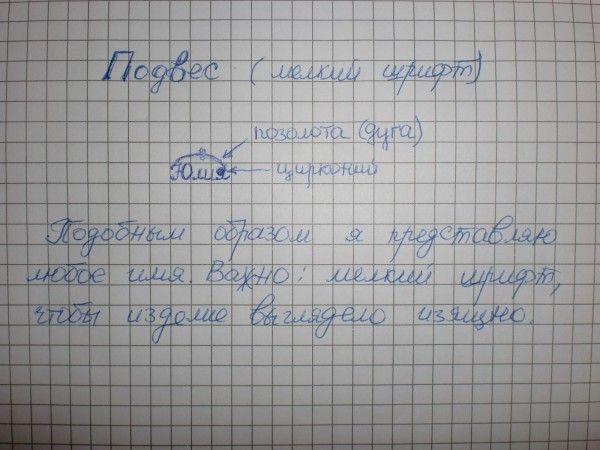 Подвес (мелкий шрифт)
позолота (дуга)
Юлия цирконий
Подобным образом я представляю
любое имя. Важно: мелкий шрифт,
чтобы изделие выглядело изящно.